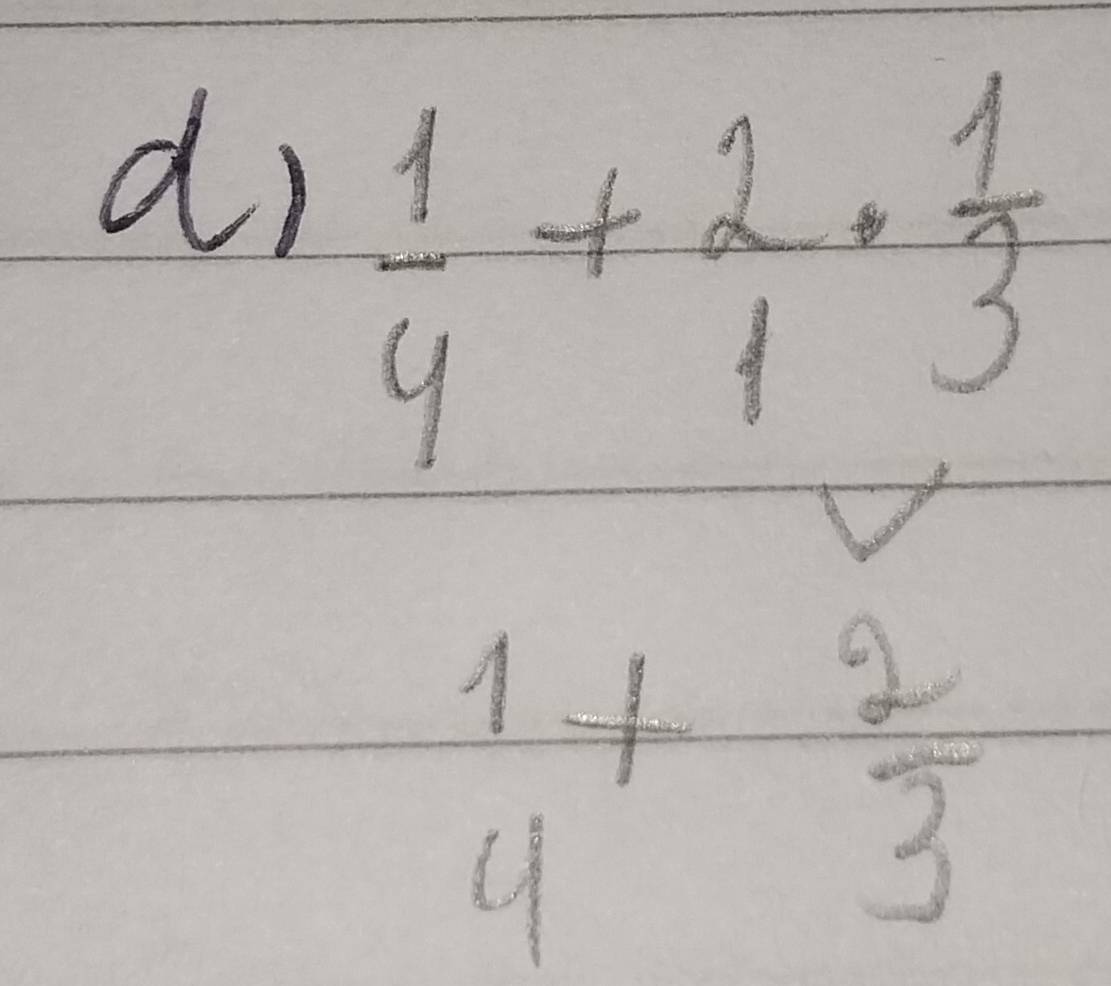 d) 1/4 + 2/1 · 1/3
1/4 + 2/3